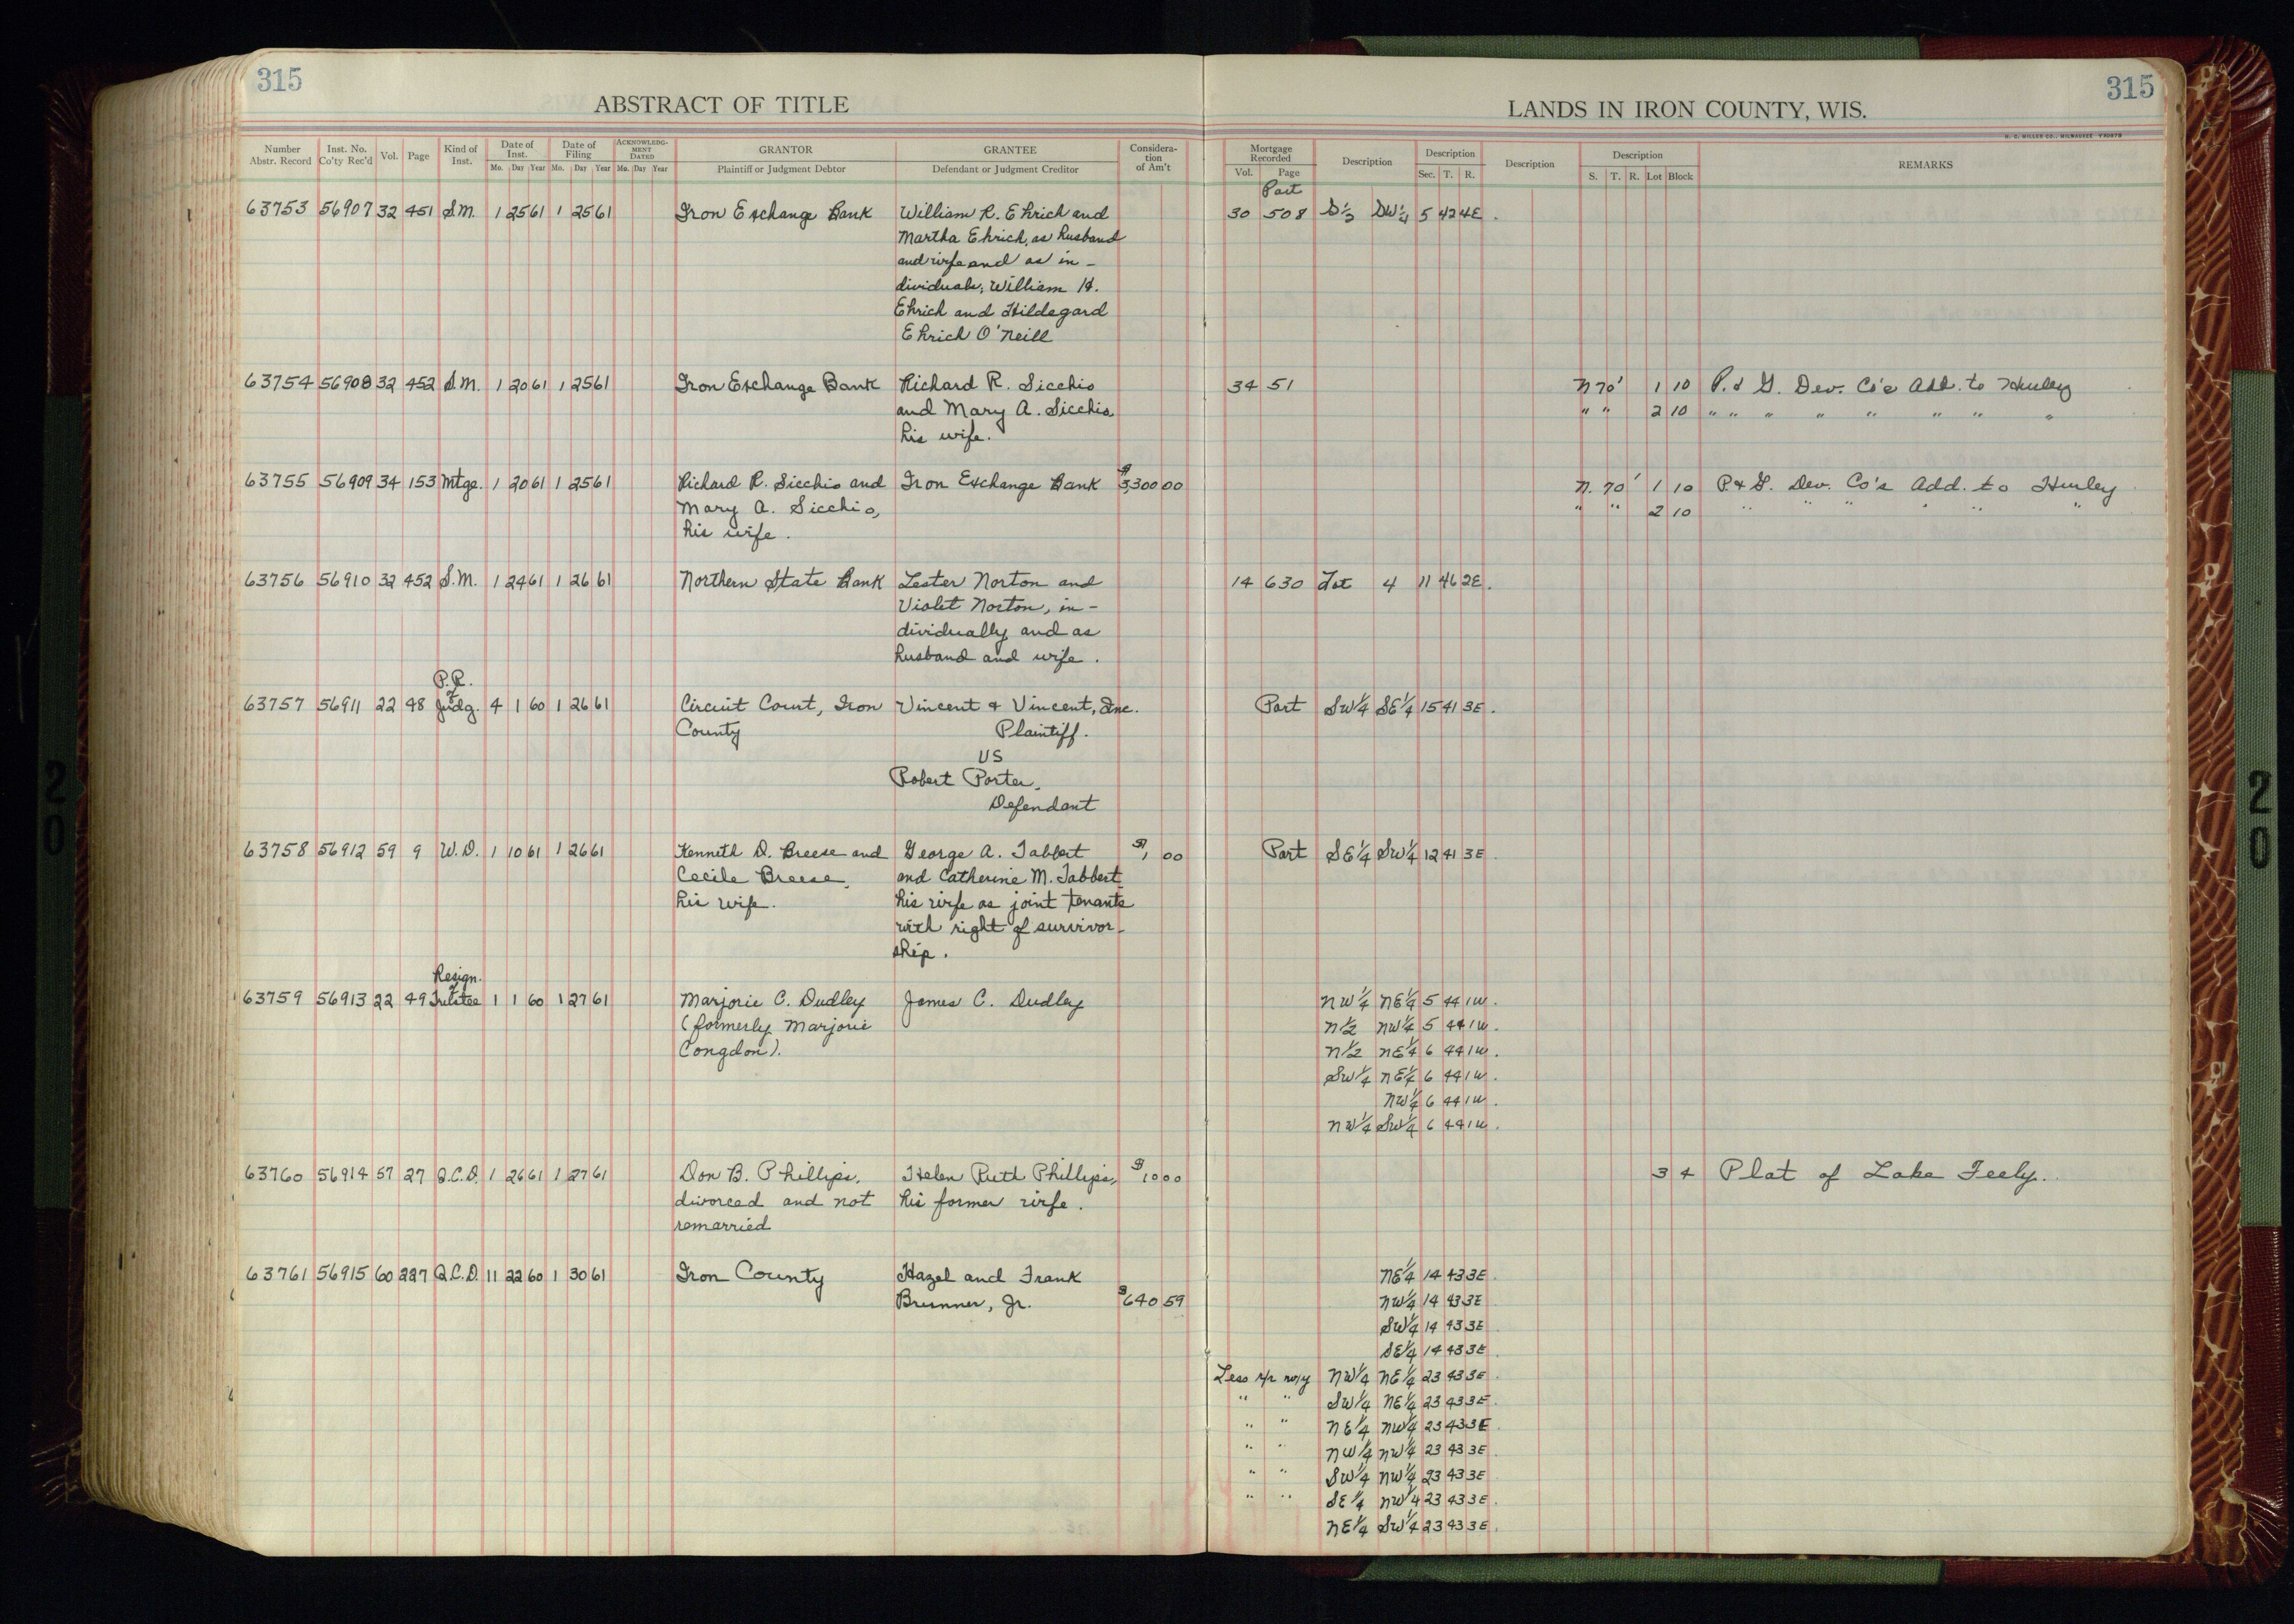 315
ABSTRACT OF TITLE
Number Abstr. Record Inst. No. Co'ty Rec'd Vol. Page Kind of Inst. Date of Inst. Mo. Day Year Date of Filing Mo. Day Year ACKNOWLEDGMENT DATED Mo. Day Year GRANTOR Plaintiff or Judgment Debtor GRANTEE Defendant or Judgment Creditor Consideration of Am't
63753 56907 32 451 S.M. 1 25 61 1 25 61 Iron Exchange Bank William R. Ehrich and
Martha Ehrich, as husband
and wife and as in-
dividuals; William H.
Ehrich and Hildegard
Ehrich O'Neill
63754 56908 32 452 S.M. 1 20 61 1 25 61 Iron Exchange Bank Richard R. Sicchio
and Mary A. Sicchio
his wife.
63755 56909 34 153 Mtge. 1 20 61 1 25 61 Richard R. Sicchio and Iron Exchange Bank $3,300 00
Mary A. Sicchio,
his wife.
63756 56910 32 452 S.M. 1 24 61 1 26 61 Northern State Bank Lester Norton and
Violet Norton, in-
dividually and as
husband and wife.
P.R.
of
63757 56911 22 48 Judg. 4 1 60 1 26 61 Circuit Court, Iron Vincent & Vincent, Inc.
County Plaintiff.
VS
Robert Porter,
Defendant
63758 56912 59 9 W.D. 1 10 61 1 26 61 Kenneth D. Breese and George A. Tabbert $1 00
Cecile Breese, and Catherine M. Tabbert
his wife. his wife as joint tenants
with right of survivor-
ship.
Resign.
of
63759 56913 22 49 Trustee 1 1 60 1 27 61 Marjorie C. Dudley James C. Dudley
(formerly Marjorie
Congdon).
63760 56914 57 27 Q.C.D. 1 26 61 1 27 61 Don B. Phillips, Helen Ruth Phillips, $10 00
divorced and not his former wife.
remarried
63761 56915 60 227 Q.C.D. 11 22 60 1 30 61 Iron County Hazel and Frank
Brunner, Jr. $640 59
315
LANDS IN IRON COUNTY, WIS.
H. C. MILLER CO., MILWAUKEE
Mortgage Recorded Vol. Page Description Description Sec. T. R. Description Description S. T. R. Lot Block REMARKS
Part
30 508 S½ SW¼ 5 42 4E.
34 51 N 70' 1 10 P. & G. Dev. Co's Add. to Hurley
" " 2 10 " " " " " " " "
N. 70' 1 10 P. & G. Dev. Co's Add. to Hurley
" " 2 10 " " " " " "
14 630 Lot 4 11 46 2E.
Part SW¼ SE¼ 15 41 3E.
Part SE¼ SW¼ 12 41 3E.
NW¼ NE¼ 5 44 1W.
N½ NW¼ 5 44 1W.
N½ NE¼ 6 44 1W.
SW¼ NE¼ 6 44 1W.
NW¼ 6 44 1W.
NW¼ SW¼ 6 44 1W.
3 4 Plat of Lake Feely.
NE¼ 14 43 3E.
NW¼ 14 43 3E
SW¼ 14 43 3E
SE¼ 14 43 3E.
Less r/r NW¼ NE¼ 23 43 3E.
" " SW¼ NE¼ 23 43 3E.
" " NE¼ NW¼ 23 43 3E.
" " NW¼ NW¼ 23 43 3E.
" " SW¼ NW¼ 23 43 3E
" " SE¼ NW¼ 23 43 3E.
NE¼ SW¼ 23 43 3E.
20
20